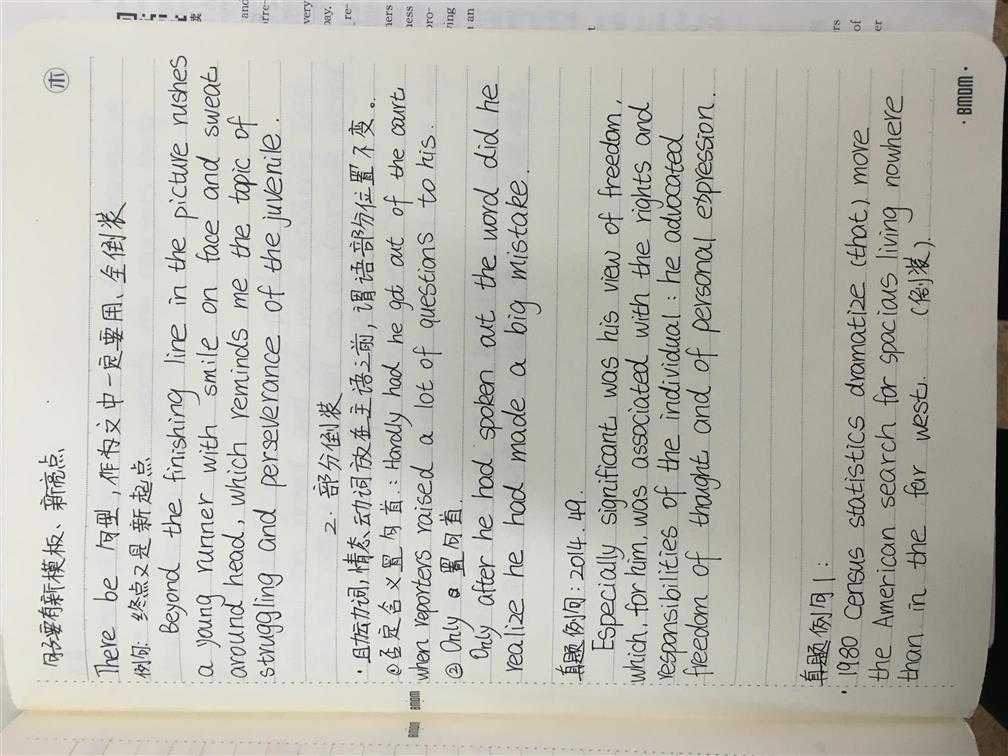 句子要有新模板、新亮点
木
There be 句型，作构文中一定要用、全倒装
例句：终点又是新起点
Beyond the finishing line in the picture rushes
a young runner with smile on face and sweat
around head, which reminds me the topic of
struggling and perseverance of the juvenile.
2. 部分倒装
·助动词，情态动词放在主语之前，谓语部份位置不变。
①否定含义置句首：Hardly had he got out of the court
when reporters raised a lot of questions to his.
② Only 置句首
Only after he had spoken out the word did he
realize he had made a big mistake.
真题例句：2014.49.
Especially significant was his view of freedom,
which, for him, was associated with the rights and
responsibilities of the individual: he advocated
freedom of thought and of personal expression.
真题例句1：
·1980 Census statistics dramatize (that) more
the American search for spacious living nowhere
than in the far west. (倒装)
BMQM
BMQM